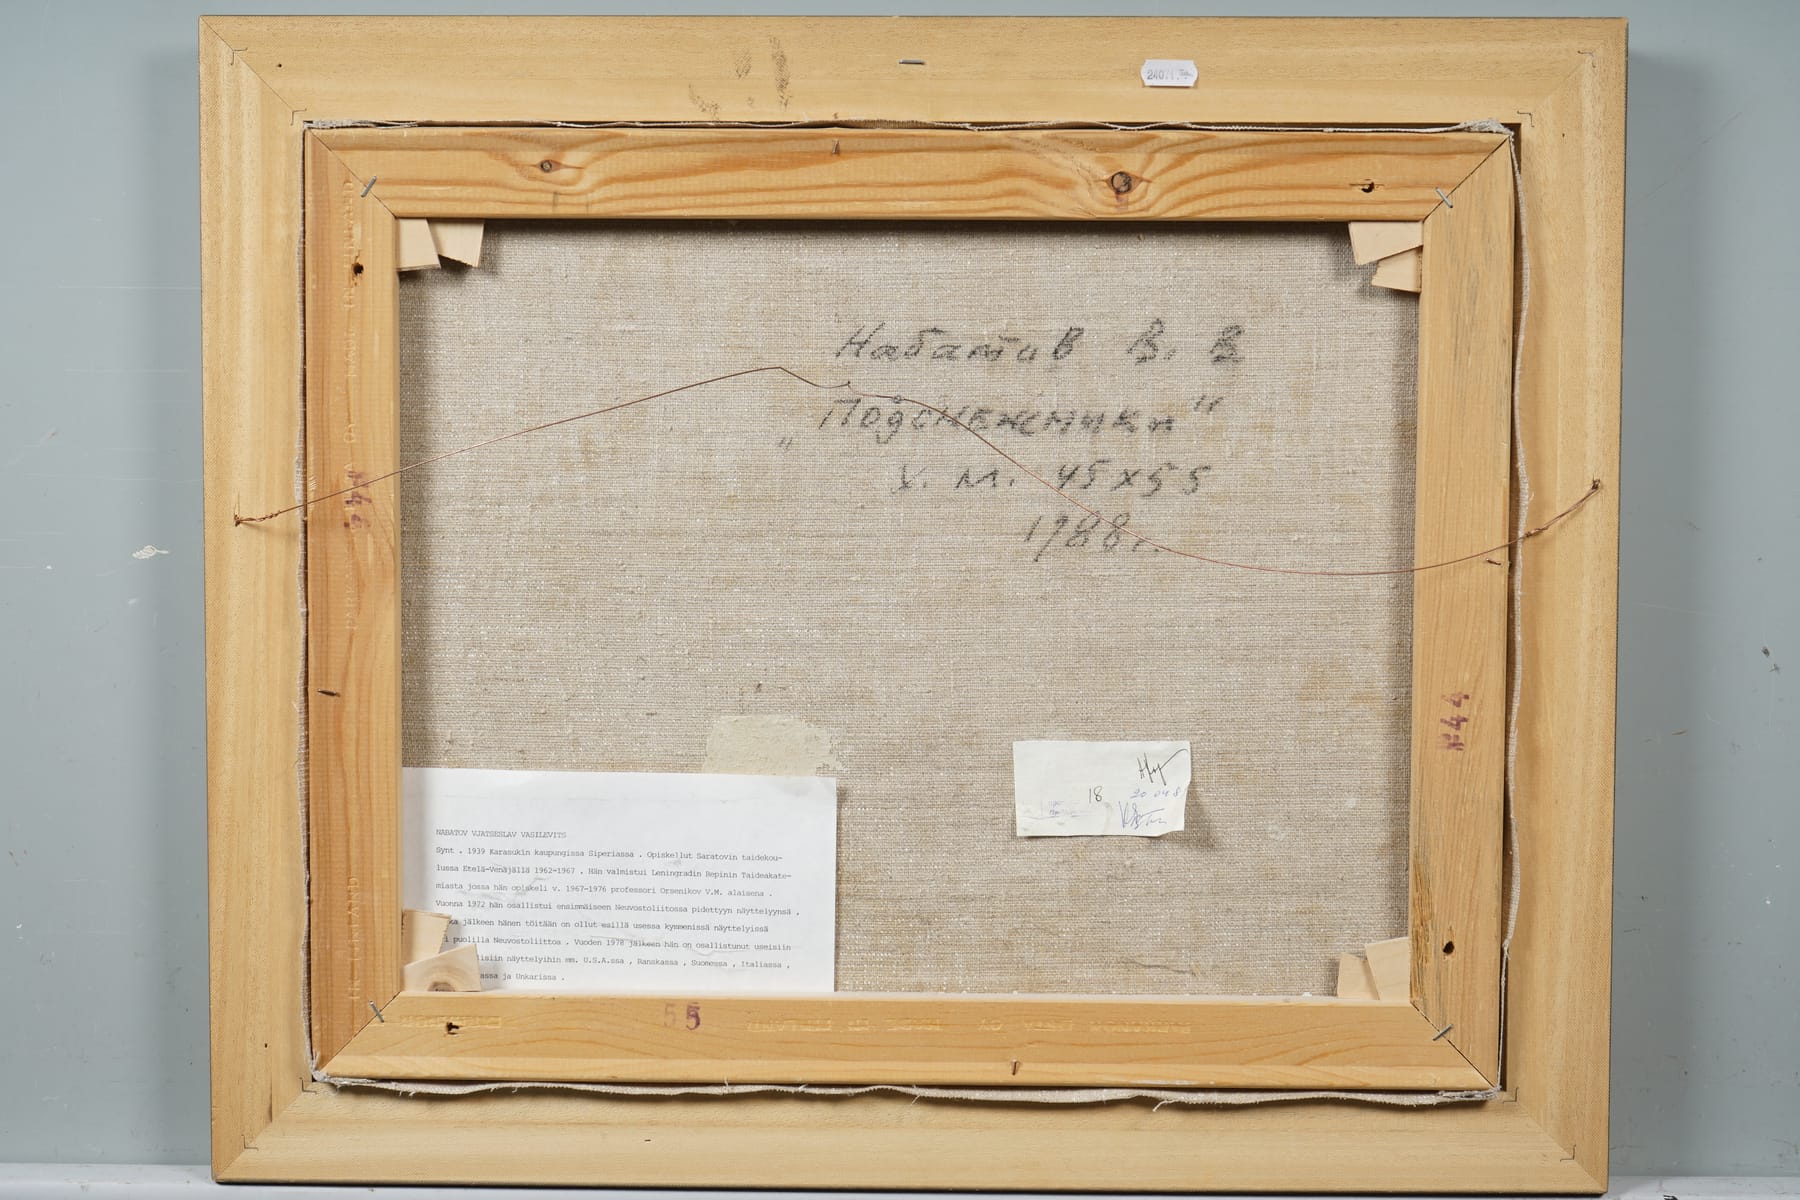 Набатов В. В
„Подснежники"
х. м. 45x55
1988г.
NABATOV VJATSESLAV VASILEVITS
Synt . 1939 Karasukin kaupungissa Siperiassa . Opiskellut Saratovin taidekou-
lussa Etelä-Venäjällä 1962-1967 . Hän valmistui Leningradin Repinin Taideakate-
miasta jossa hän opiskeli v. 1967-1976 professori Orsenikov V.M. alaisena .
Vuonna 1972 hän osallistui ensimmäiseen Neuvostoliitossa pidettyyn näyttelyynsä ,
jälkeen hänen töitään on ollut esillä usessa kymmenissä näyttelyissä
puolilla Neuvostoliittoa . Vuoden 1978 jälkeen hän on osallistunut useisiin
näyttelyihin mm. U.S.A.ssa , Ranskassa , Suomessa , Italiassa ,
ja Unkarissa .
18
55
№44